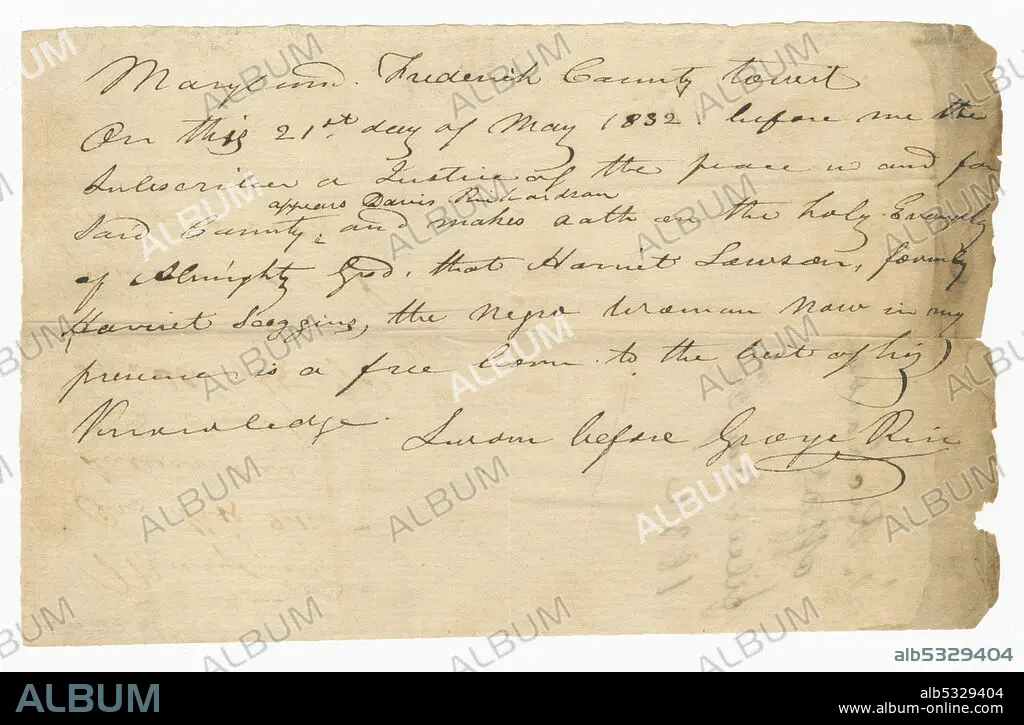 Maryland. Frederick County towit
On this 21st day of May 1832. before me the
Subscriber a Justice of the peace in and for
appears Davis Richardson
Said County, and makes oath on the holy Evangely
of Almighty God, that Harriet Lawson, formily
Harriet Scoggins, the negro woman now in my
presence, is a free born to the best of his
Knowledge.
Sworn before George Rice
ALBUM
alb5329404
ALBUM
alb5329404
www.album-online.com